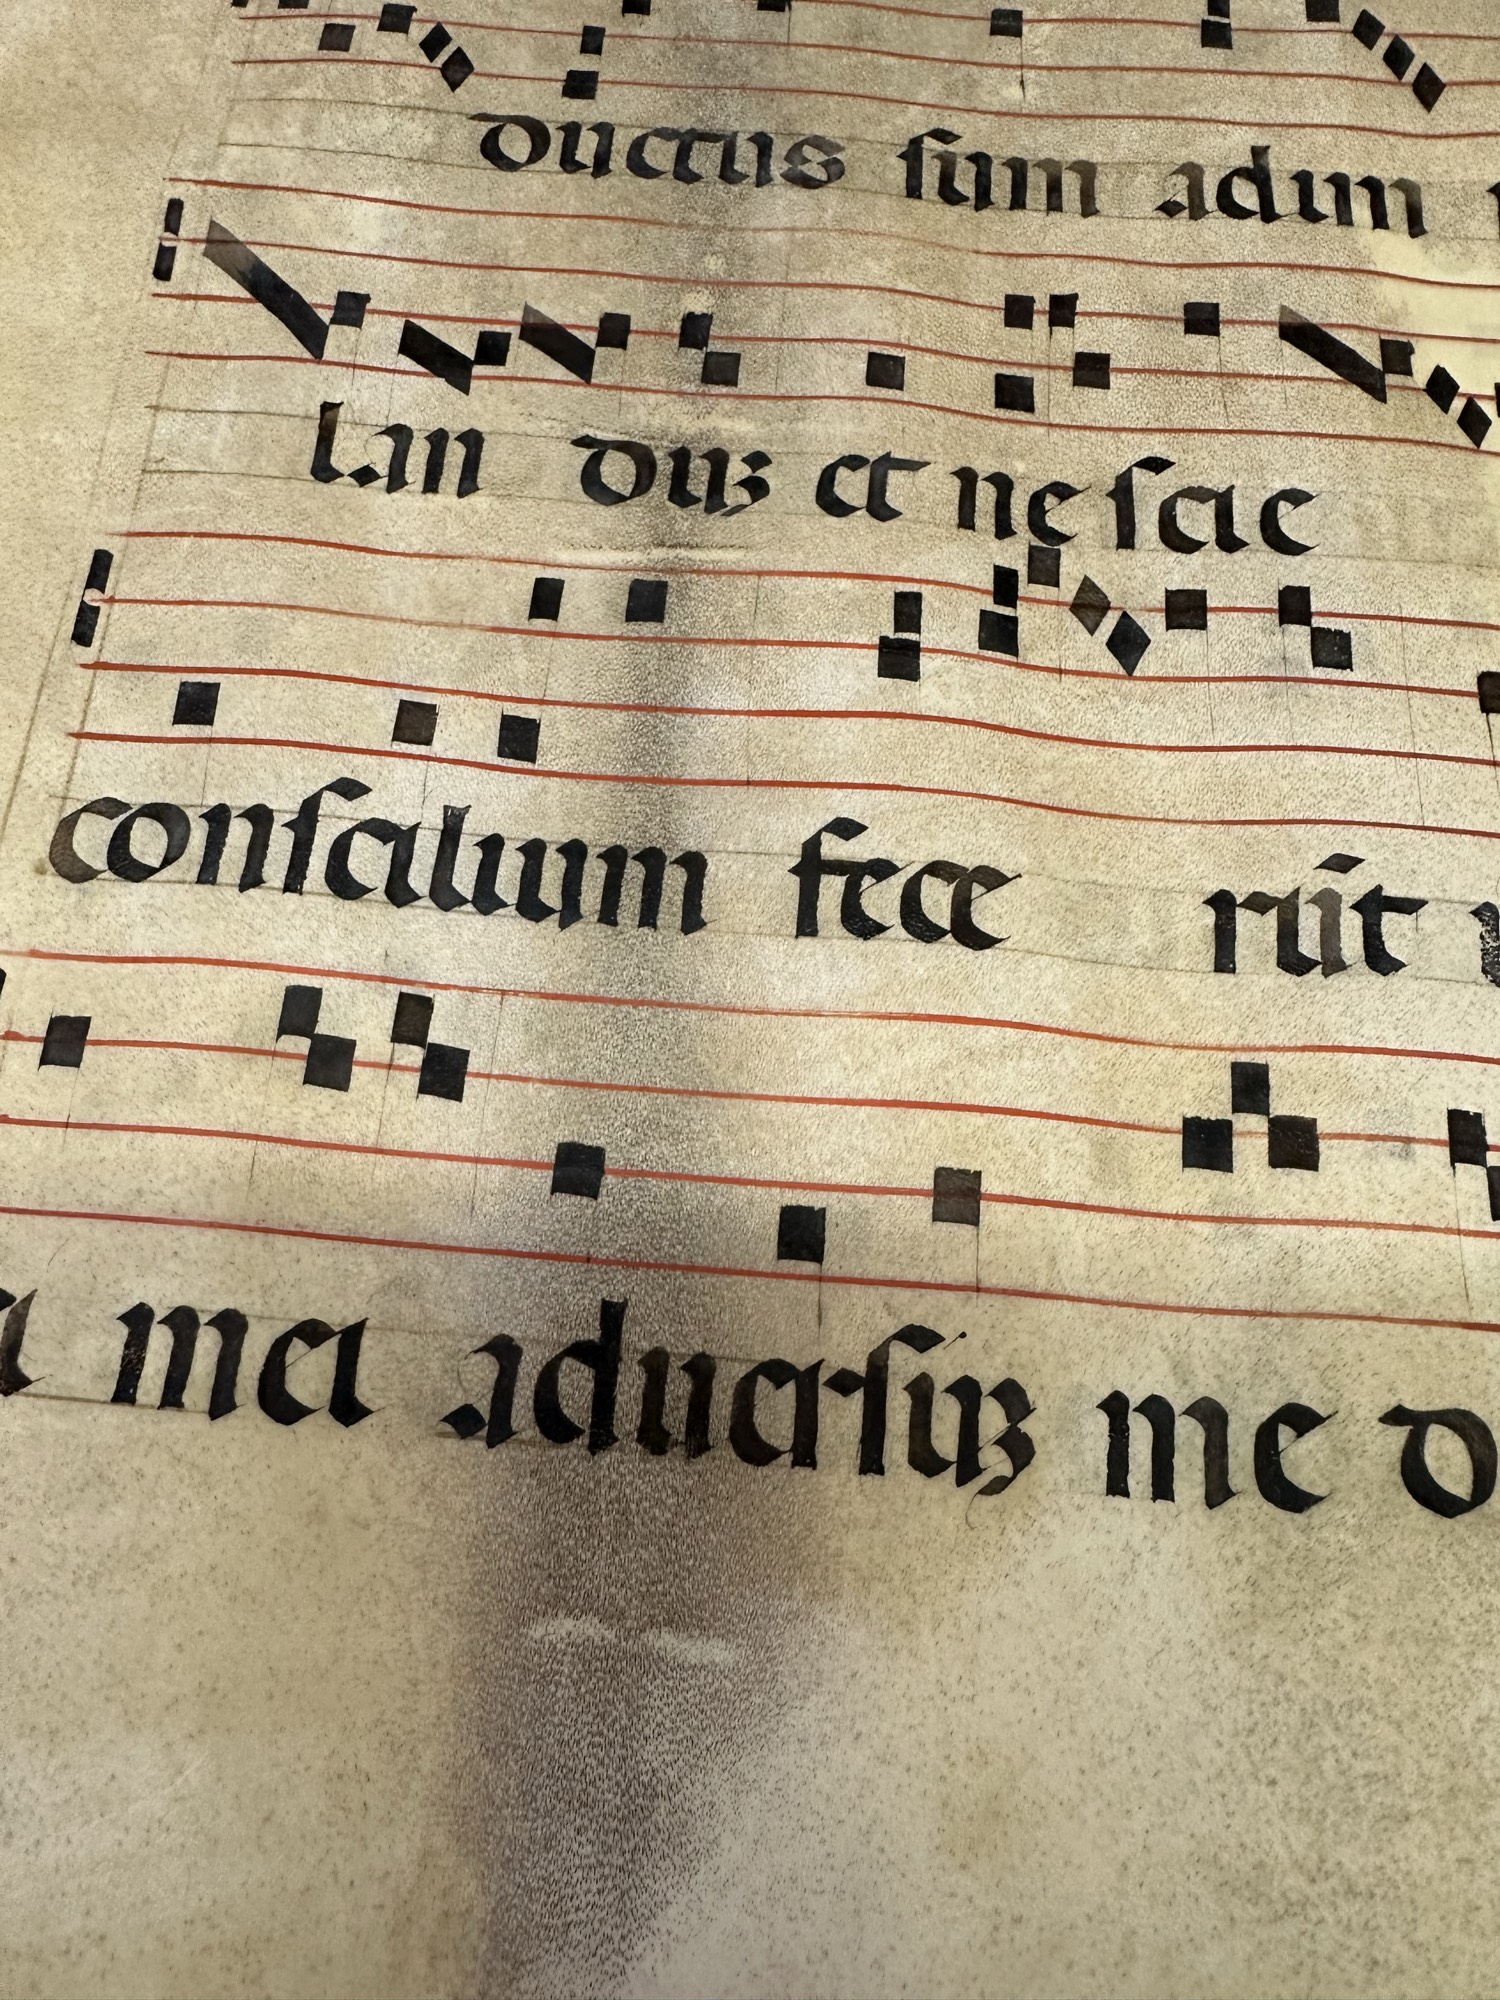 ductus sum adim
lan duꝫ et ne scie
conscilium fece rūt
mei aduersuꝫ me d